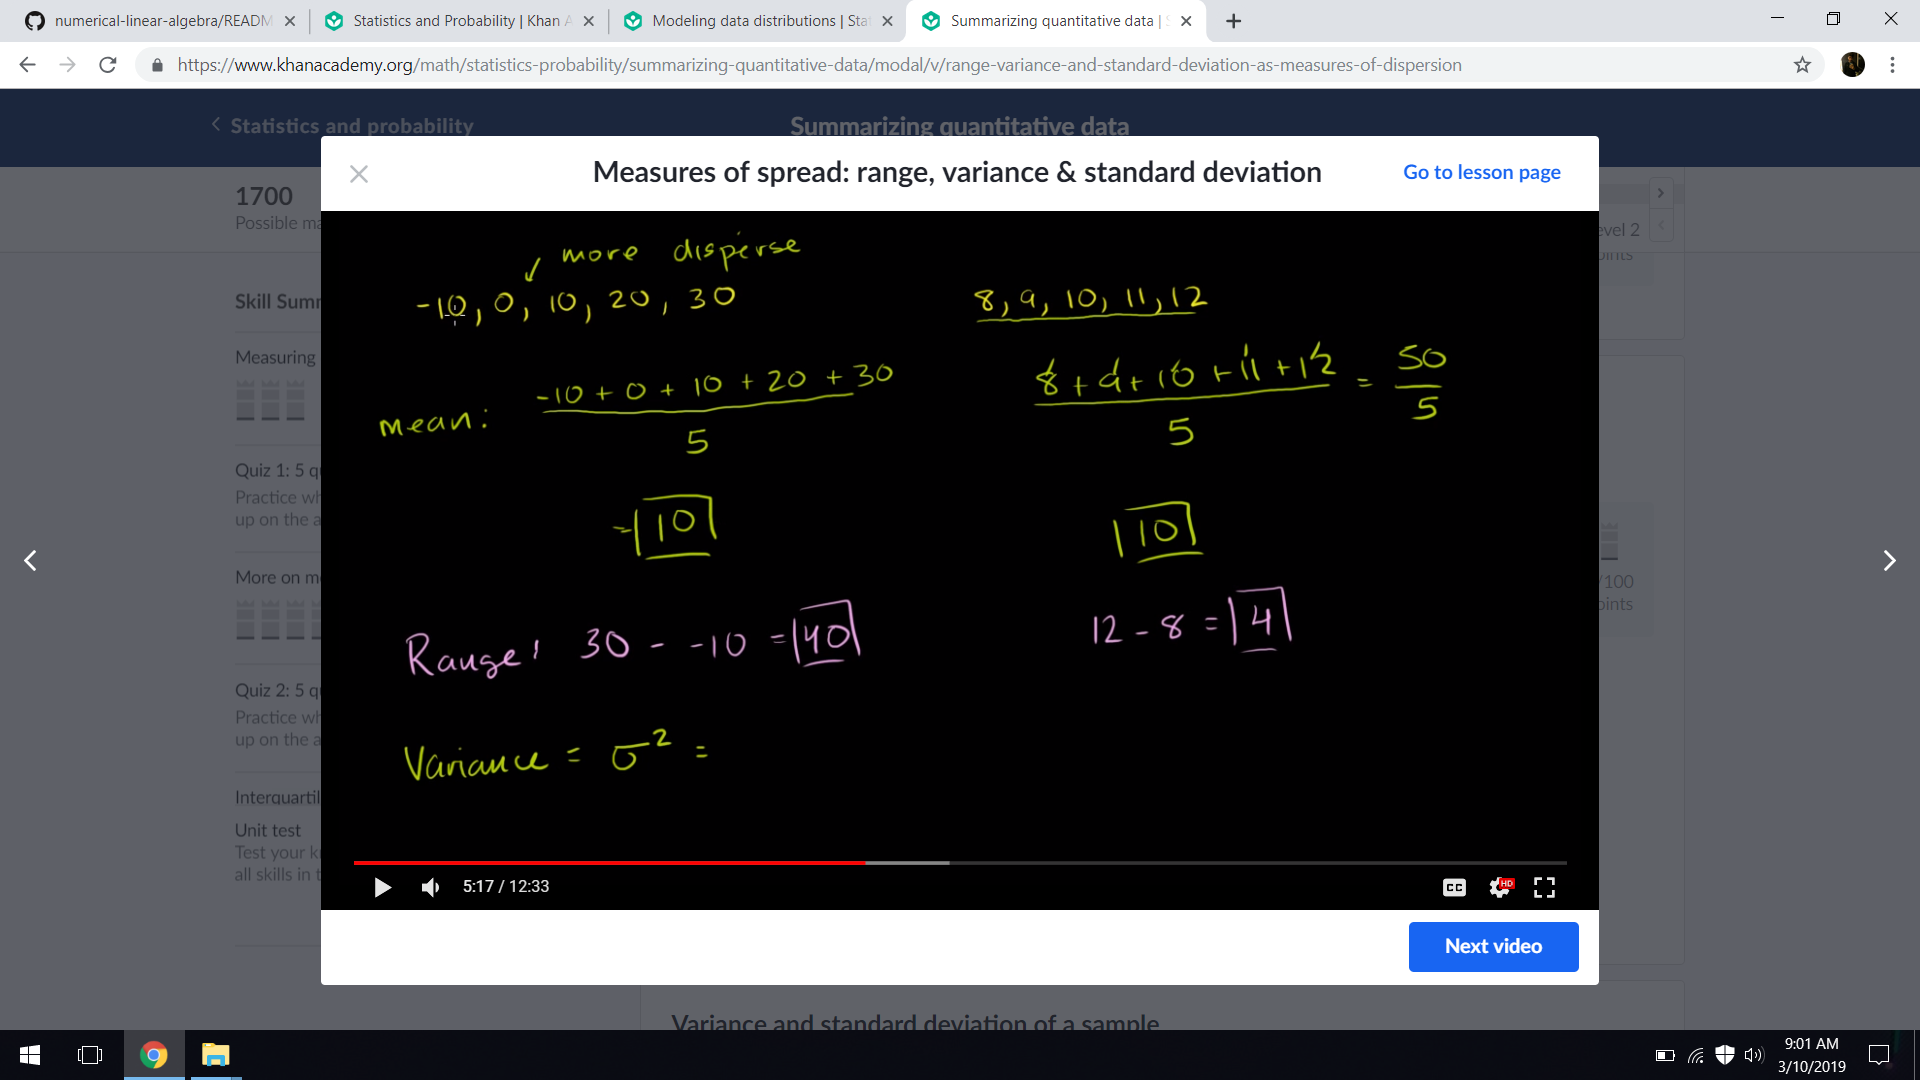 numerical-linear-algebra/READM
Statistics and Probability | Khan A
Modeling data distributions | Stat
Summarizing quantitative data | S
https://www.khanacademy.org/math/statistics-probability/summarizing-quantitative-data/modal/v/range-variance-and-standard-deviation-as-measures-of-dispersion
Statistics and probability
Summarizing quantitative data
1700
Possible ma
evel 2
oints
Skill Summ
Measuring
Quiz 1: 5 qu
Practice wh
up on the a
More on m
Quiz 2: 5 qu
Practice wh
up on the a
Interquartil
Unit test
Test your k
all skills in t
/100
oints
Measures of spread: range, variance & standard deviation
Go to lesson page
more disperse
-10, 0, 10, 20, 30
8, 9, 10, 11, 12
mean: -10 + 0 + 10 + 20 + 30
5
8 + 9 + 10 + 11 + 12 = 50
5 5
= 10
10
Range: 30 - -10 = 40
12 - 8 = 4
Variance = σ² =
5:17 / 12:33
CC
HD
Next video
Variance and standard deviation of a sample
9:01 AM
3/10/2019